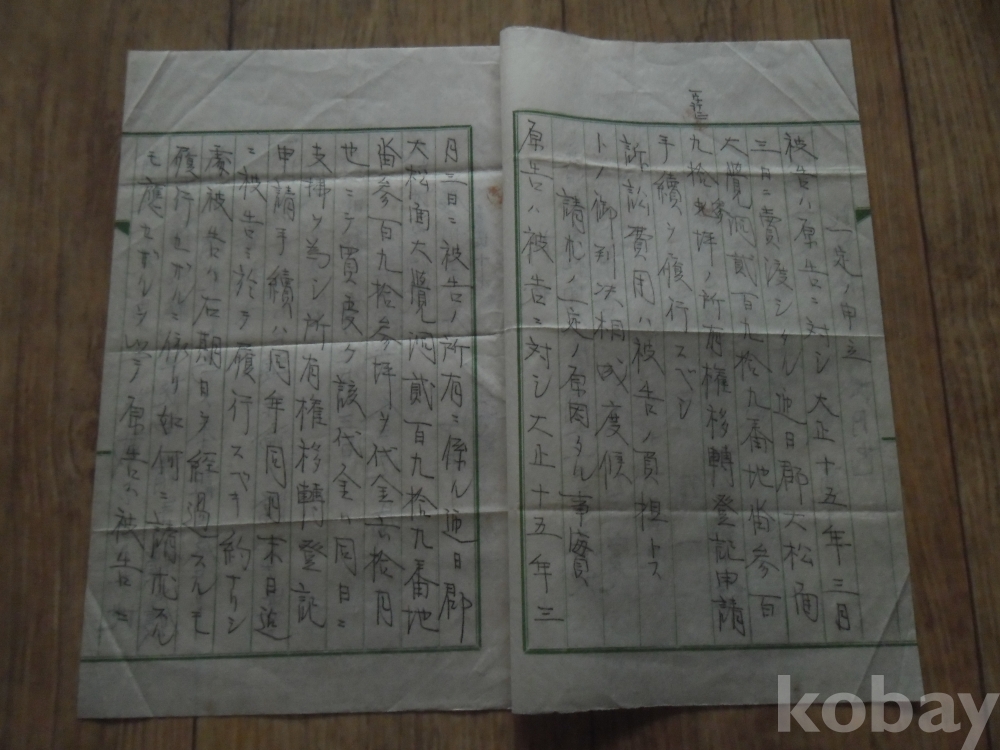 一定ノ申立
被告ハ原告ニ対シ大正十五年三月
三日ニ賣渡シタル迎日郡大松面
大覺洞貳百九拾九番地畓参百
九拾参坪ノ所有権移轉登記申請
手續ヲ履行スベシ
訴訟費用ハ被告ノ負担トス
トノ御判決相成度候
請求ノ一定ノ原因タル事實
原告ハ被告ニ対シ大正十五年三
月三日ニ被告ノ所有ニ係ル迎日郡
大松面大覺洞貳百九拾九番地
畓参百九拾参坪ヲ代金六拾円
也ニテ買受ケ該代金ハ同日ニ
支拂ヲ為シ所有権移轉登記
申請手續ハ同年同月末日迄
ニ被告ニ於テ履行スベキ約ナリシ
處被告ハ右期日ヲ経過スルモ
履行セザルニ依リ如何ニ請求スル
モ應セザルヲ以テ原告ハ被告ニ
kobay